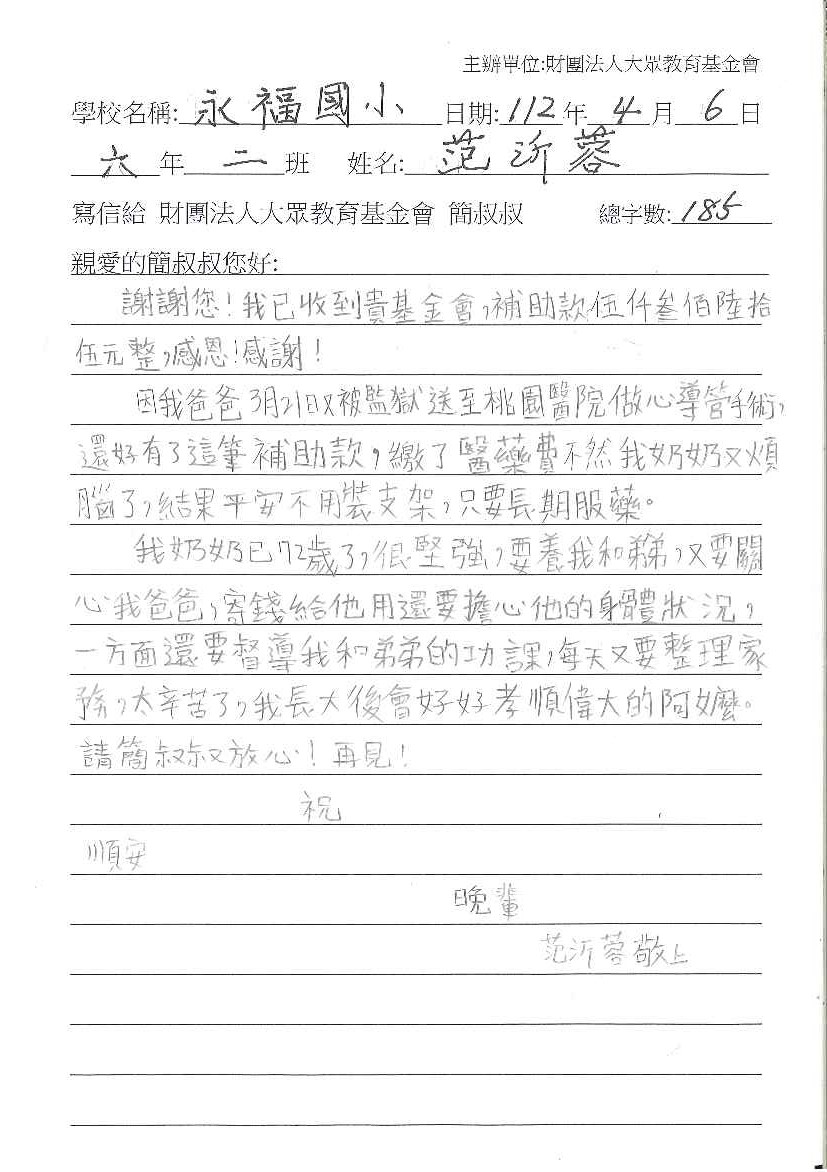 主辦單位:財團法人大眾教育基金會
學校名稱: 永福國小 日期: 112 年 4 月 6 日
六 年 二 班 姓名: 范沂蓉
寫信給 財團法人大眾教育基金會 簡叔叔 總字數: 185
親愛的簡叔叔您好:
謝謝您!我已收到貴基金會,補助款伍仟叁佰陸拾
伍元整,感恩!感謝!
因我爸爸3月21日又被監獄送至桃園醫院做心導管手術,
還好有了這筆補助款,繳了醫藥費不然我奶奶又煩
腦了,結果平安不用裝支架,只要長期服藥。
我奶奶已72歲了,很堅強,要養我和弟弟,又要關
心我爸爸,寄錢給他用還要擔心他的身體狀況,
一方面還要督導我和弟弟的功課,每天又要整理家
務,太辛苦了,我長大後會好好孝順偉大的阿嬤。
請簡叔叔放心!再見!
祝
順安
晚輩
范沂蓉敬上